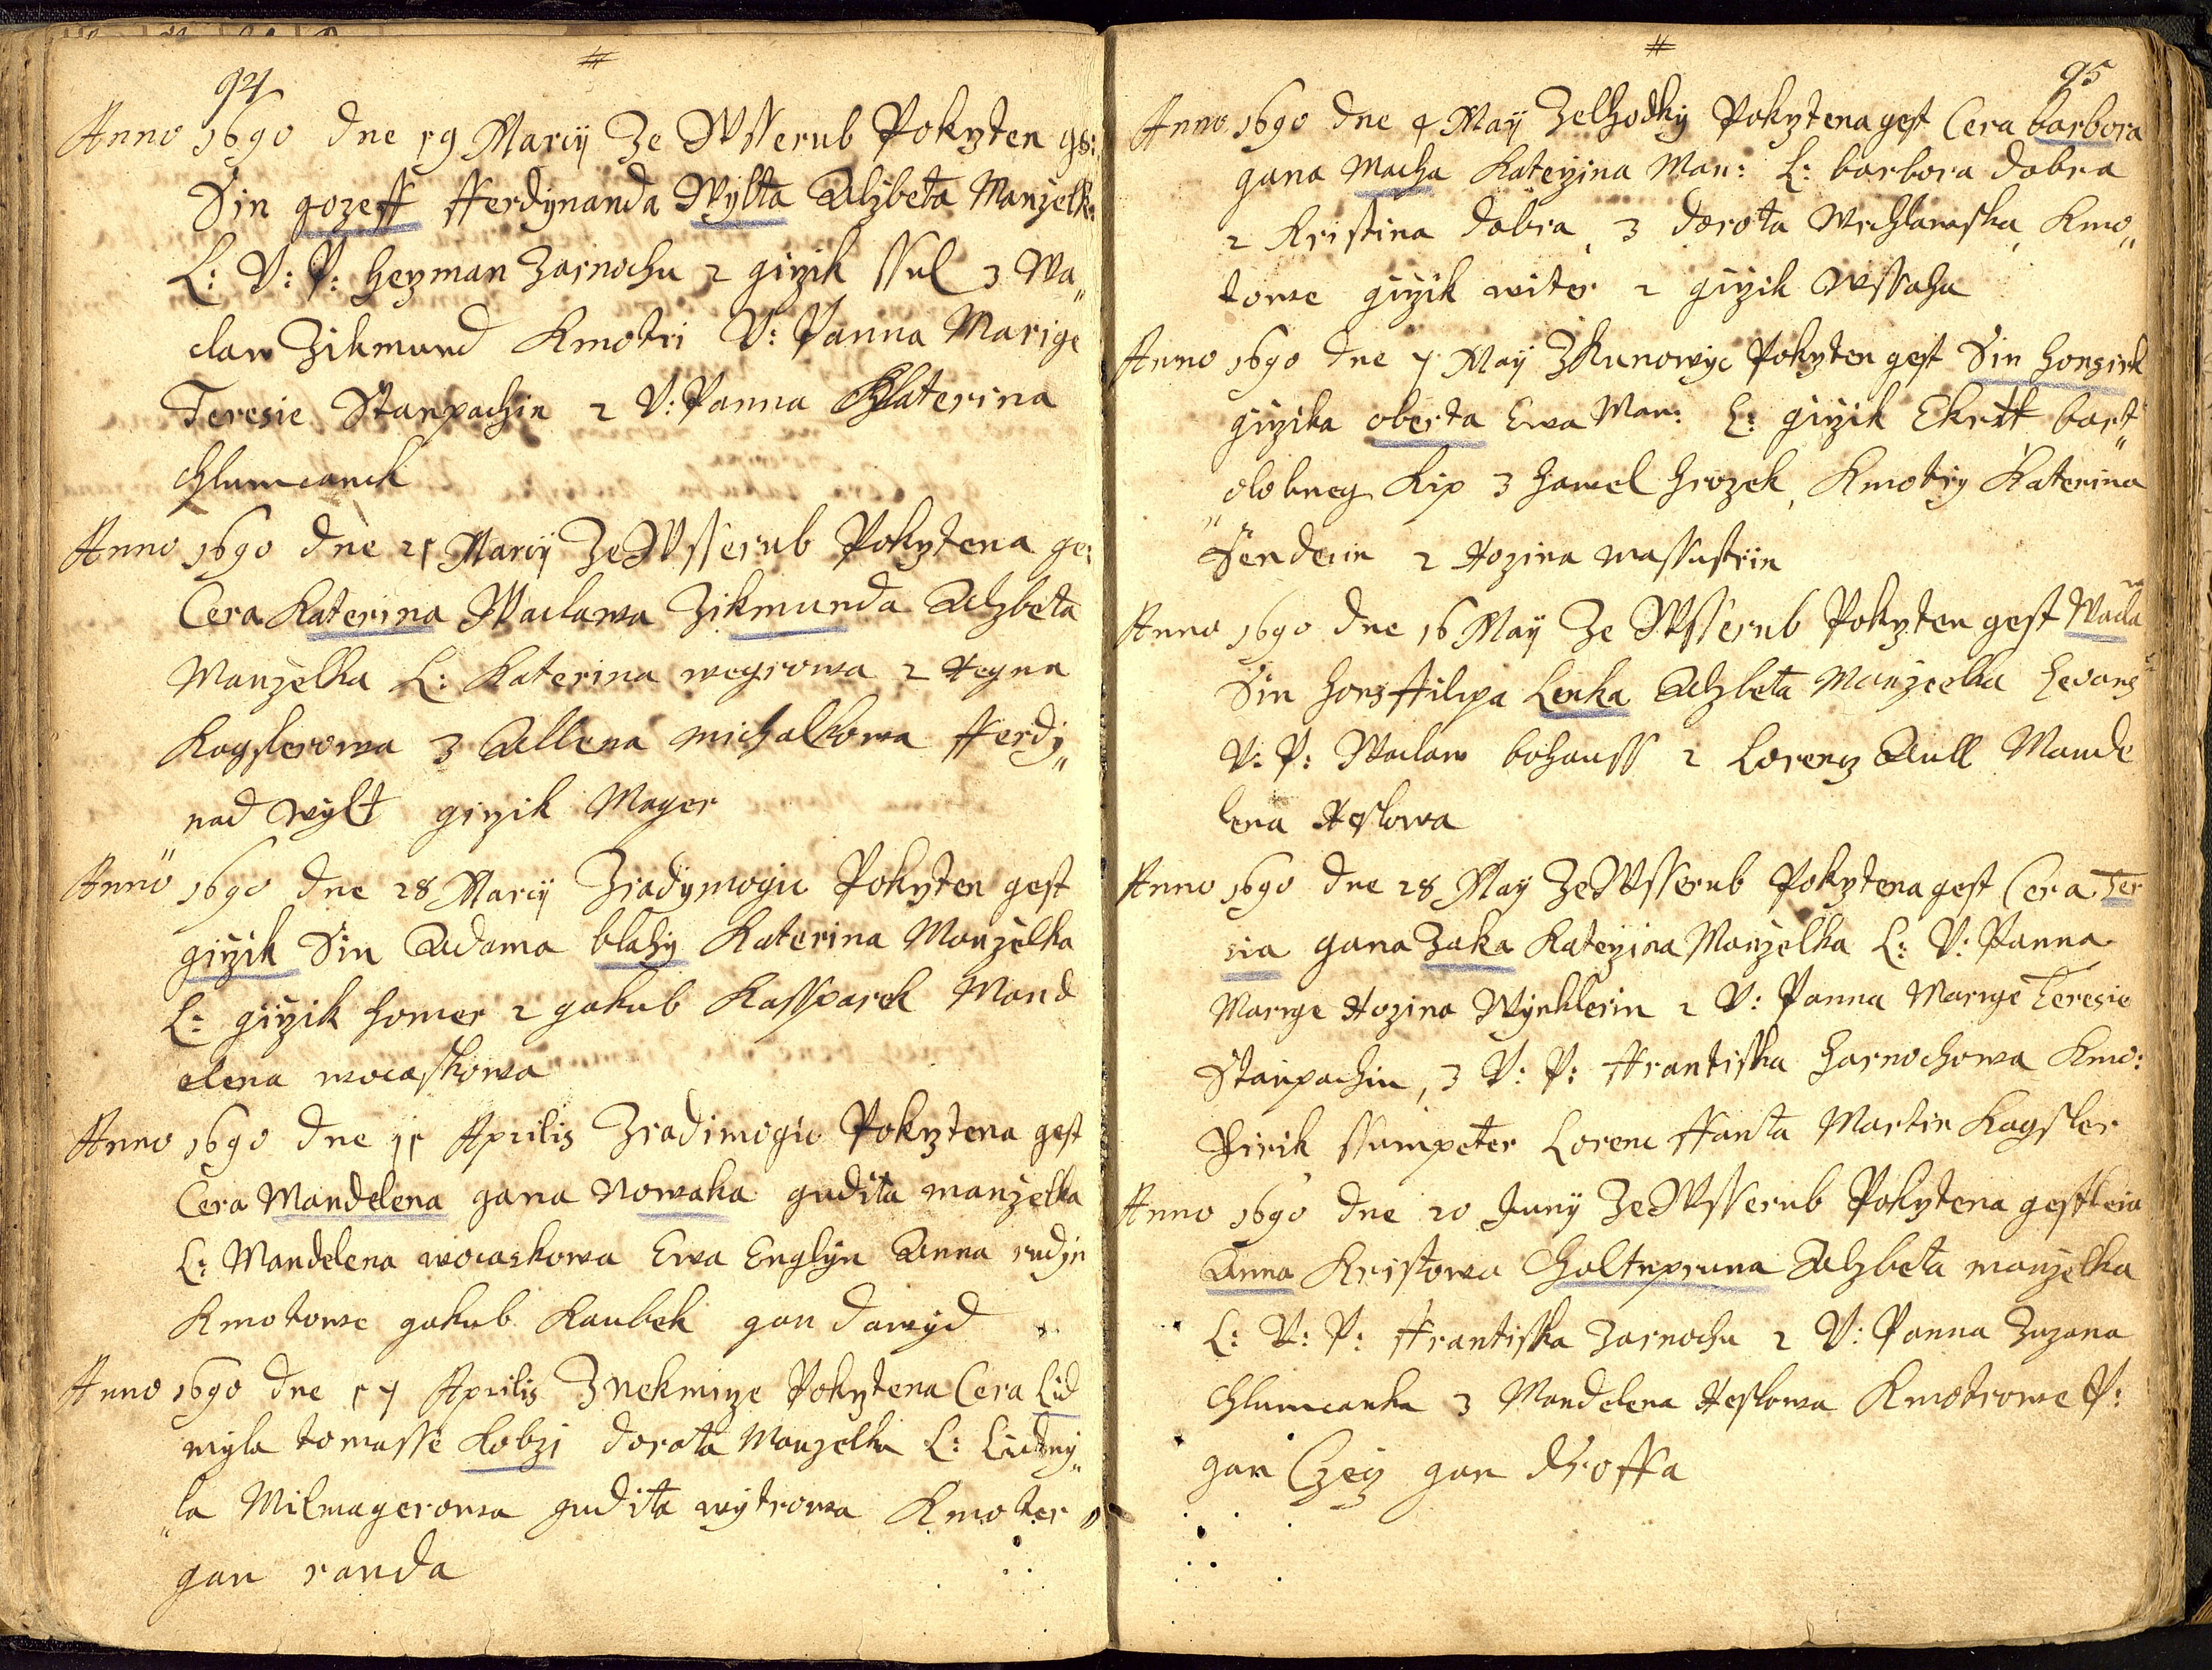 94
Anno 1690 dne 19 Marcÿ Ze Wsserub Pokrzten gs:
Sin gozeff Fferdÿnanda Wÿlta Alzbeta Manzelk:
L: U: P: Herman Harnochu 2 girzik ssul 3 Wa„
claw Zikmund Kmotri U: Panna Marige
Teresie Stanpachin 2 U: Panna Katerina
Chlumcanek
Anno 1690 dne 21 Marcÿ Ze Wsserub Pokrztena ge:
Cera Katerina Waclawa Zikmunda Alzbeta
Manzelka L: Katerina wegrowa 2 Regina
Kagslerowa 3 Allena michalkowa Fferdÿ„
nad wÿlt girzik Mayer
Anno 1690 dne 28 Marcÿ Zradÿmogic Pokrzten gest
girzik Sin Adama blahÿ Katerina Manzelka
L: girzik homer 2 gakub Kassparek Mand
elena wocaskowa
Anno 1690 dne 11 Aprilis Zradimogic Pokrztena gest
Cera Mandelena gana Nowaka gudita manzelka
L: Mandelena wocaskowa Ewa Englÿn Anna rudÿn
Kmotowe gakub Kaubek gan dawÿd
Anno 1690 dne 17 Aprilis Znekmirze Pokrztena Cera Lid
mÿla tomasse Kobzi dorota Manzelka L: Lidmÿ„
„la Milmagerowa gudita wÿtrowa Kmoter„
gan randa
95
Anno 1690 dne 4 Maÿ Zelhodkÿ Pokrztena gest Cera barbora
gana Macha Katerzina Man: L: barbora dobra
2 Kristina dobra, 3 dorota Wrchlawska, Kmo„
towe girzik witer 2 girzik Wssaha
Anno 1690 dne 7 Maÿ ZKunowÿc Pokrzten gest Sin honzirk
girzika oberta Ewa Man: L: girzik Ekrtt bart„
„olomeg Kip 3 hawel hrozek, Kmotrÿ Katerina
Senderin 2 Rozina massustrin
Anno 1690 dne 16 Maÿ Ze Wsserub Pokrzten gest Wacla
Sin hons Filipa Lenka Alzbeta Manzelka
U: P: Waclaw bohauss 2 Lorentz Aull Mande
lena Heslowa
Anno 1690 dne 28 Maÿ Ze Wsserub Pokrztena gest Cera Ter
sia gana Zaka Katerzina Manzelka L: U: Panna
Marige Rozina Wÿnklerin 2 U: Panna Marige Teresie
Stanpachin, 3 U: P: Ffrantiska Harnochowa Kmo:
Jirik ssumpeter Lorenc Ffanta Martin Kagsler
Anno 1690 dne 20 Junÿ Ze Wsserub Pokrztena gest
Anna Kristowa Choltnpruna Alzbeta manzelka
L: U: P: Ffrantiska Harnochu 2 U: Panna Zuzana
Chlumcanka 3 Mandelena Heslowa Kmotrowe P:
gan Czeÿ gan droffa